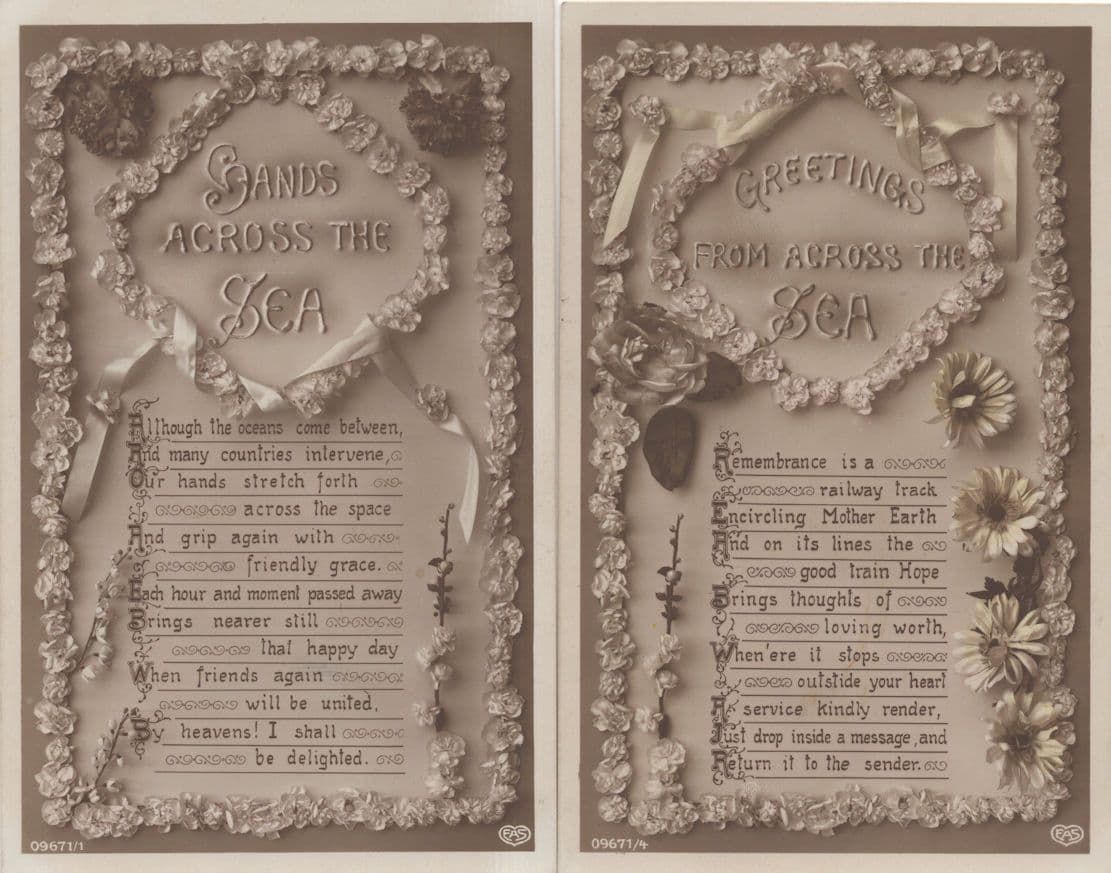 HANDS
ACROSS THE
SEA
Although the oceans come between,
And many countries intervene,
Our hands stretch forth
across the space
And grip again with
friendly grace.
Each hour and moment passed away
Brings nearer still
that happy day
When friends again
will be united,
By heavens! I shall
be delighted.
09671/1
EAS
GREETINGS
FROM ACROSS THE
SEA
Remembrance is a
railway track
Encircling Mother Earth
And on its lines the
good train Hope
Brings thoughts of
loving worth,
When'ere it stops
outstide your heart
A service kindly render,
Just drop inside a message, and
Return it to the sender.
09671/4
EAS